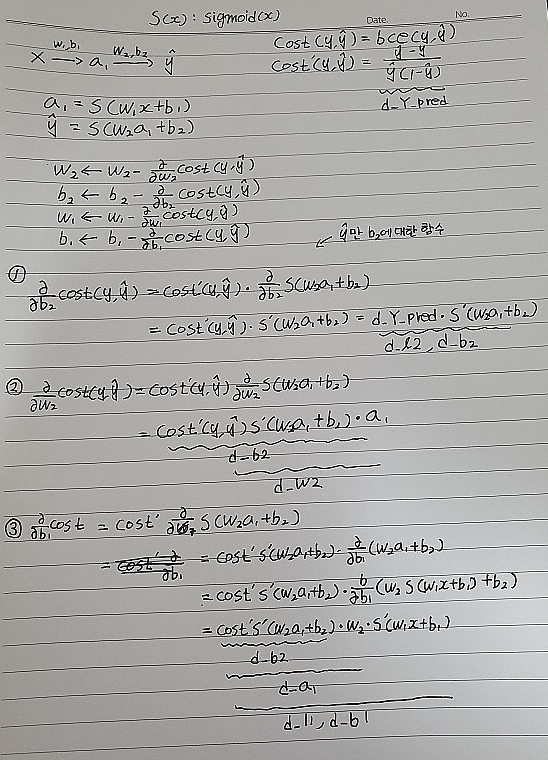 S(x) : sigmoid(x)
Date. No.
x →(w₁,b₁) a₁ →(w₂,b₂) ŷ
cost(y,ŷ) = bce(y,ŷ)
cost'(y,ŷ) = ŷ-y / ŷ(1-ŷ)
d_Y_pred
a₁ = S(w₁x+b₁)
ŷ = S(w₂a₁+b₂)
w₂ ← w₂ - ∂/∂w₂ cost(y,ŷ)
b₂ ← b₂ - ∂/∂b₂ cost(y,ŷ)
w₁ ← w₁ - ∂/∂w₁ cost(y,ŷ)
b₁ ← b₁ - ∂/∂b₁ cost(y,ŷ)
↙ ŷ만 b₂에 대한 함수
① ∂/∂b₂ cost(y,ŷ) = cost'(y,ŷ) · ∂/∂b₂ S(w₂a₁+b₂)
= cost'(y,ŷ) · S'(w₂a₁+b₂) = d_Y_pred · S'(w₂a₁+b₂)
d_l2, d_b2
② ∂/∂w₂ cost(y,ŷ) = cost'(y,ŷ) ∂/∂w₂ S(w₂a₁+b₂)
= cost'(y,ŷ) S'(w₂a₁+b₂) · a₁
d_b2
d_w2
③ ∂/∂b₁ cost = cost' S(w₂a₁+b₂)
= cost' ∂/∂b₁ = cost' S'(w₂a₁+b₂) · ∂/∂b₁ (w₂a₁+b₂)
= cost' S'(w₂a₁+b₂) · ∂/∂b₁ (w₂ S(w₁x+b₁) + b₂)
= cost' S'(w₂a₁+b₂) · w₂ · S'(w₁x+b₁)
d_b2
d_a₁
d_l1, d_b1